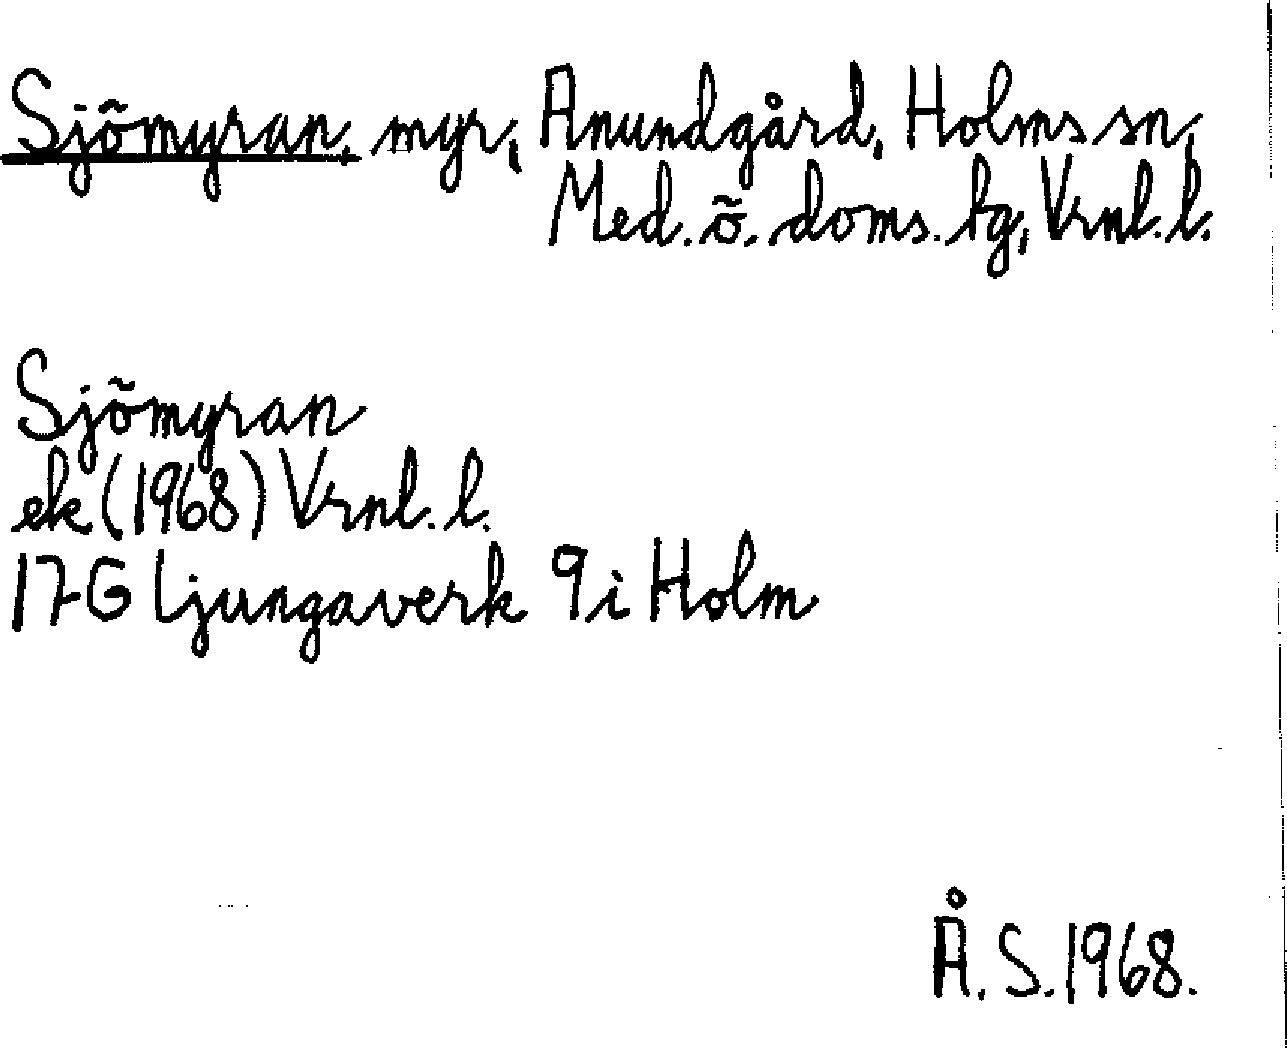 Sjömyran, myr, Anundgård, Holms sn,
Med. ö. doms. tg, Vrnl. l.
Sjömyran
ek (1968) Vrnl. l.
17G Ljungaverk 9i Holm
Å. S. 1968.